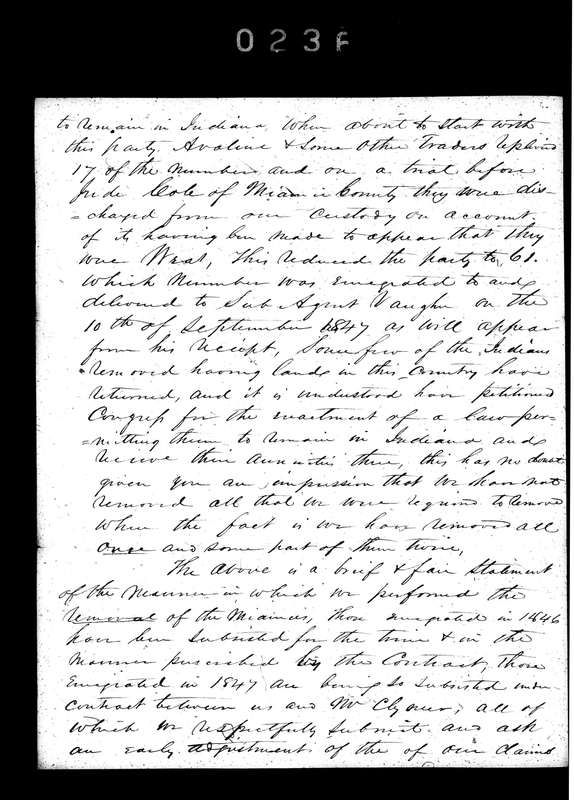 023
to remain in Indiana, When about to start with
this party, Avaline & Some other Traders
17 of the number and on a trial before
Cole of Miami County they were dis-
=charged from our Custody on account
of its having ben made to appear that they
were this reduced the party to 61.
Which number was emigrated to and
delivered to Sub Agent Vaughn on the
10th of September 1847 as will appear
from his receipt, Some few of the Indians
removed having lands in this Country have
returned, and it is understood have petitioned
Congress for the enactment of a law per-
=mitting them to remain in Indiana and
receive their annuities there, this has no doubt
given you an impression that we have not
removed all that we were required to remove
When the fact is we have removed all
once and some part of them twice,
The above is a brief & fair Statement
of the manner in which we performed the
removal of the Miamies, those emigrated in 1846
have ben Subsisted for the time & in the
manner prescribed by the Contract, those
Emigrated in 1847 are being so subsisted under
contract between us and Mr Clymer; all of
which we respectfully Submit and ask
an early adjustment of the of our claims